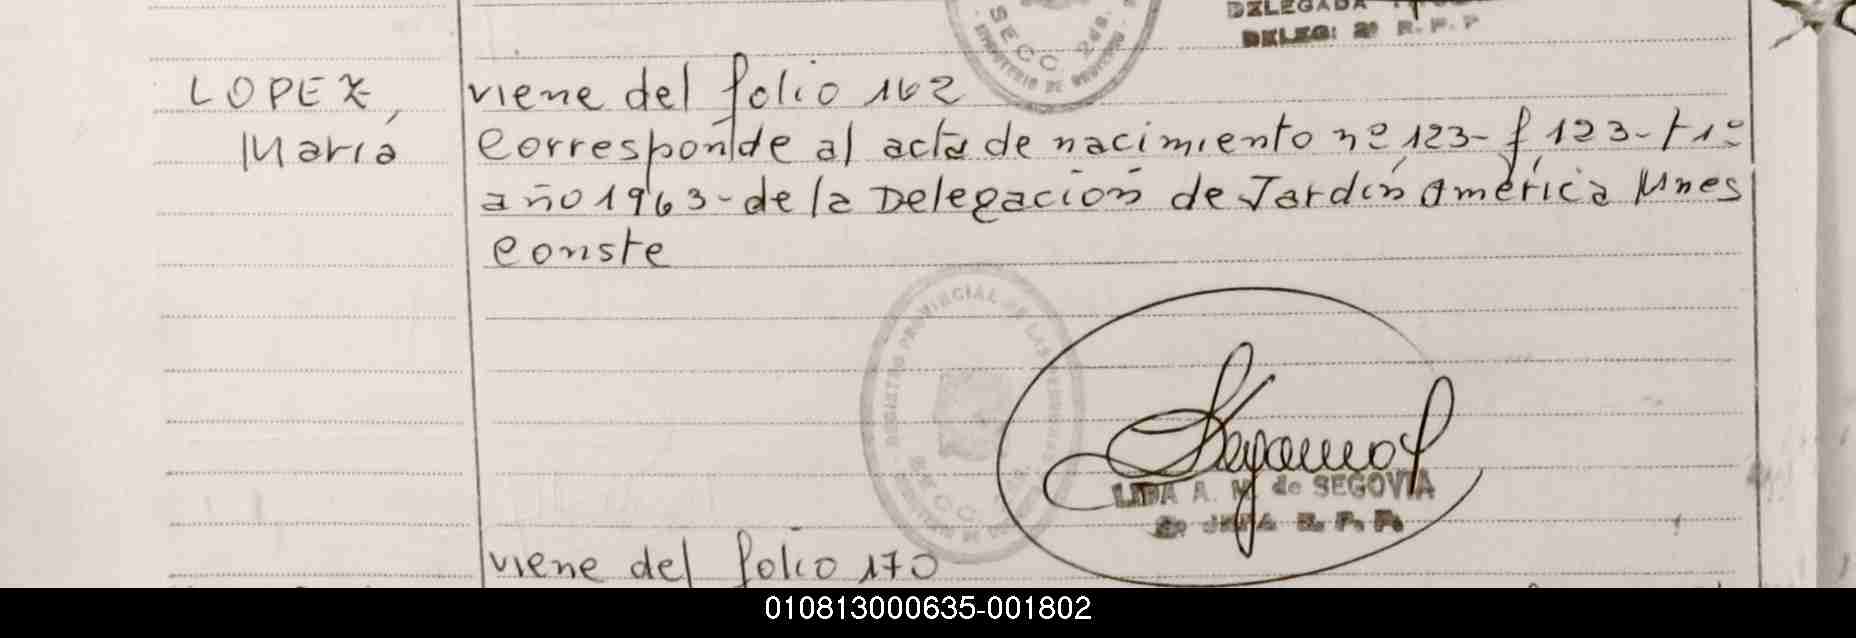 DELEGADA
DELEG: 2ª R.P.P
SECC 2da.
LOPEZ, viene del folio 162
María corresponde al acta de nacimiento nº 123- f 123- t 1º
año 1963- de la Delegación de Jardín América Mnes
conste
REGISTRO PROVINCIAL DE LAS PERSONAS
SECC.
LIDA A. M. de SEGOVIA
2ª JEFA R. P. P.
viene del folio 170
010813000635-001802